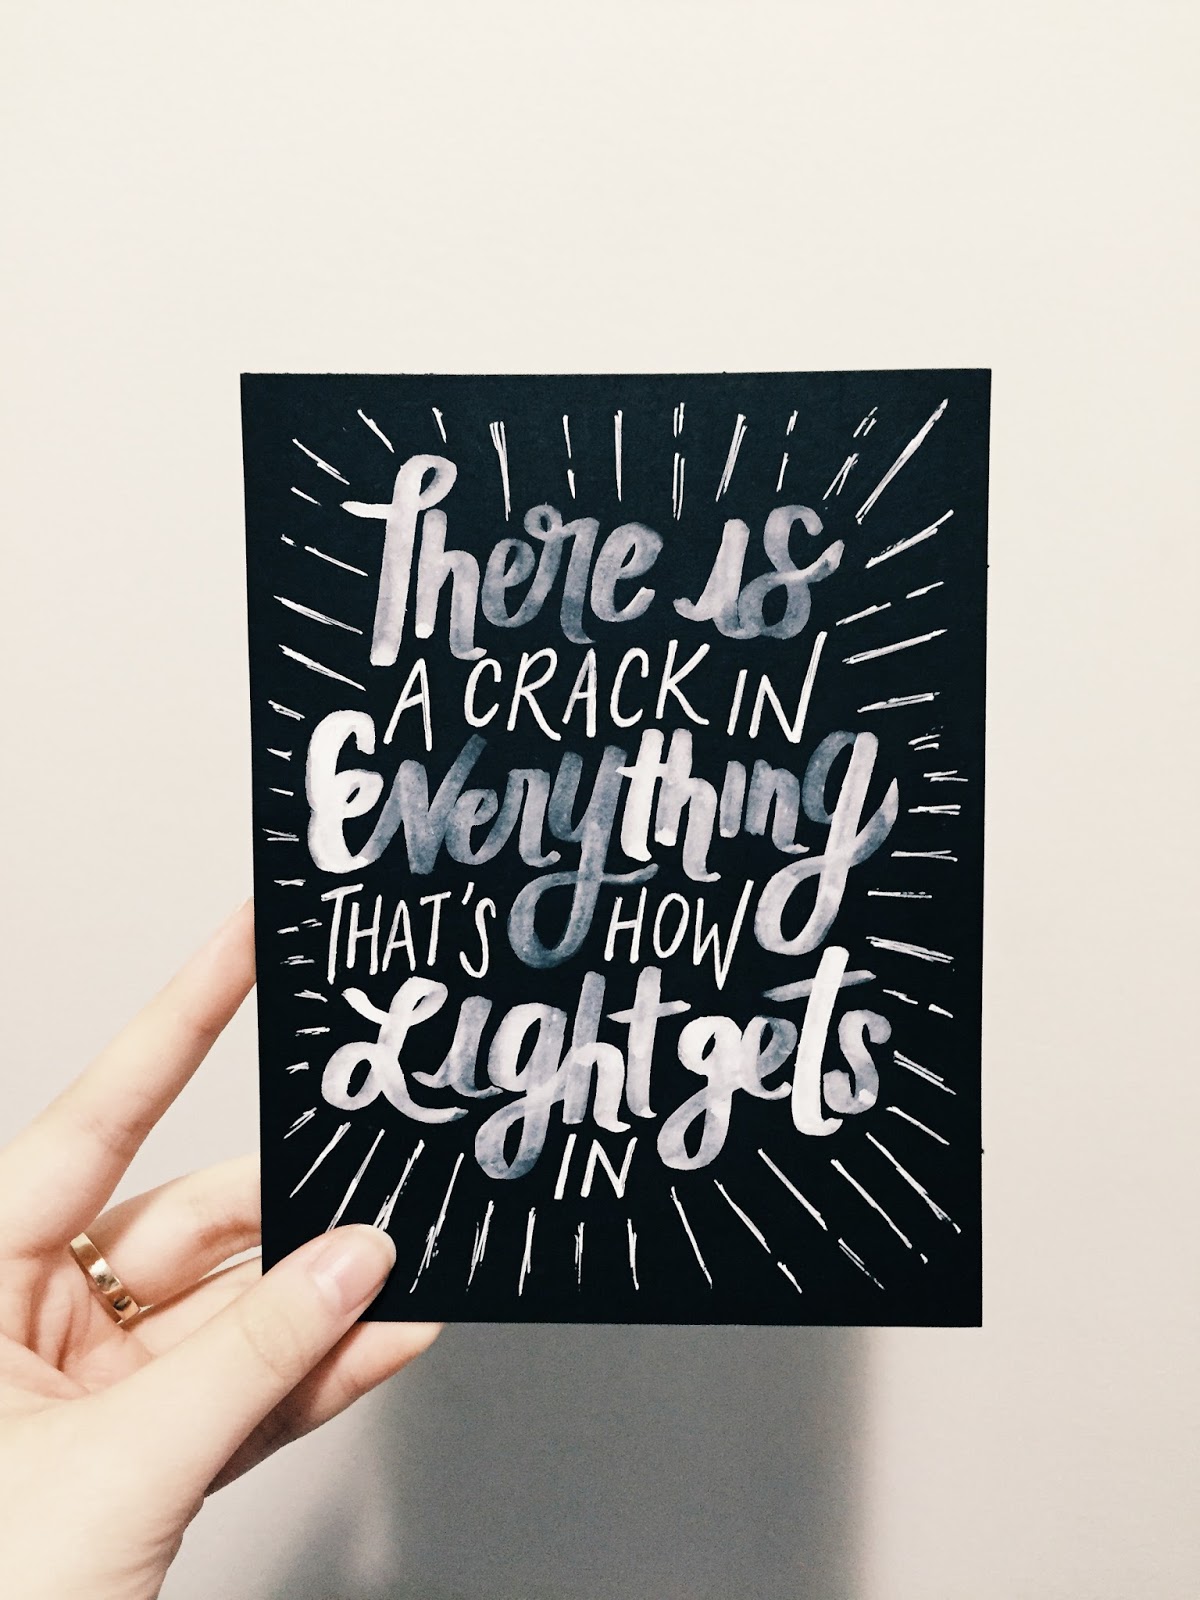 There is
A CRACK IN
Everything
THAT'S HOW
Light gets
IN